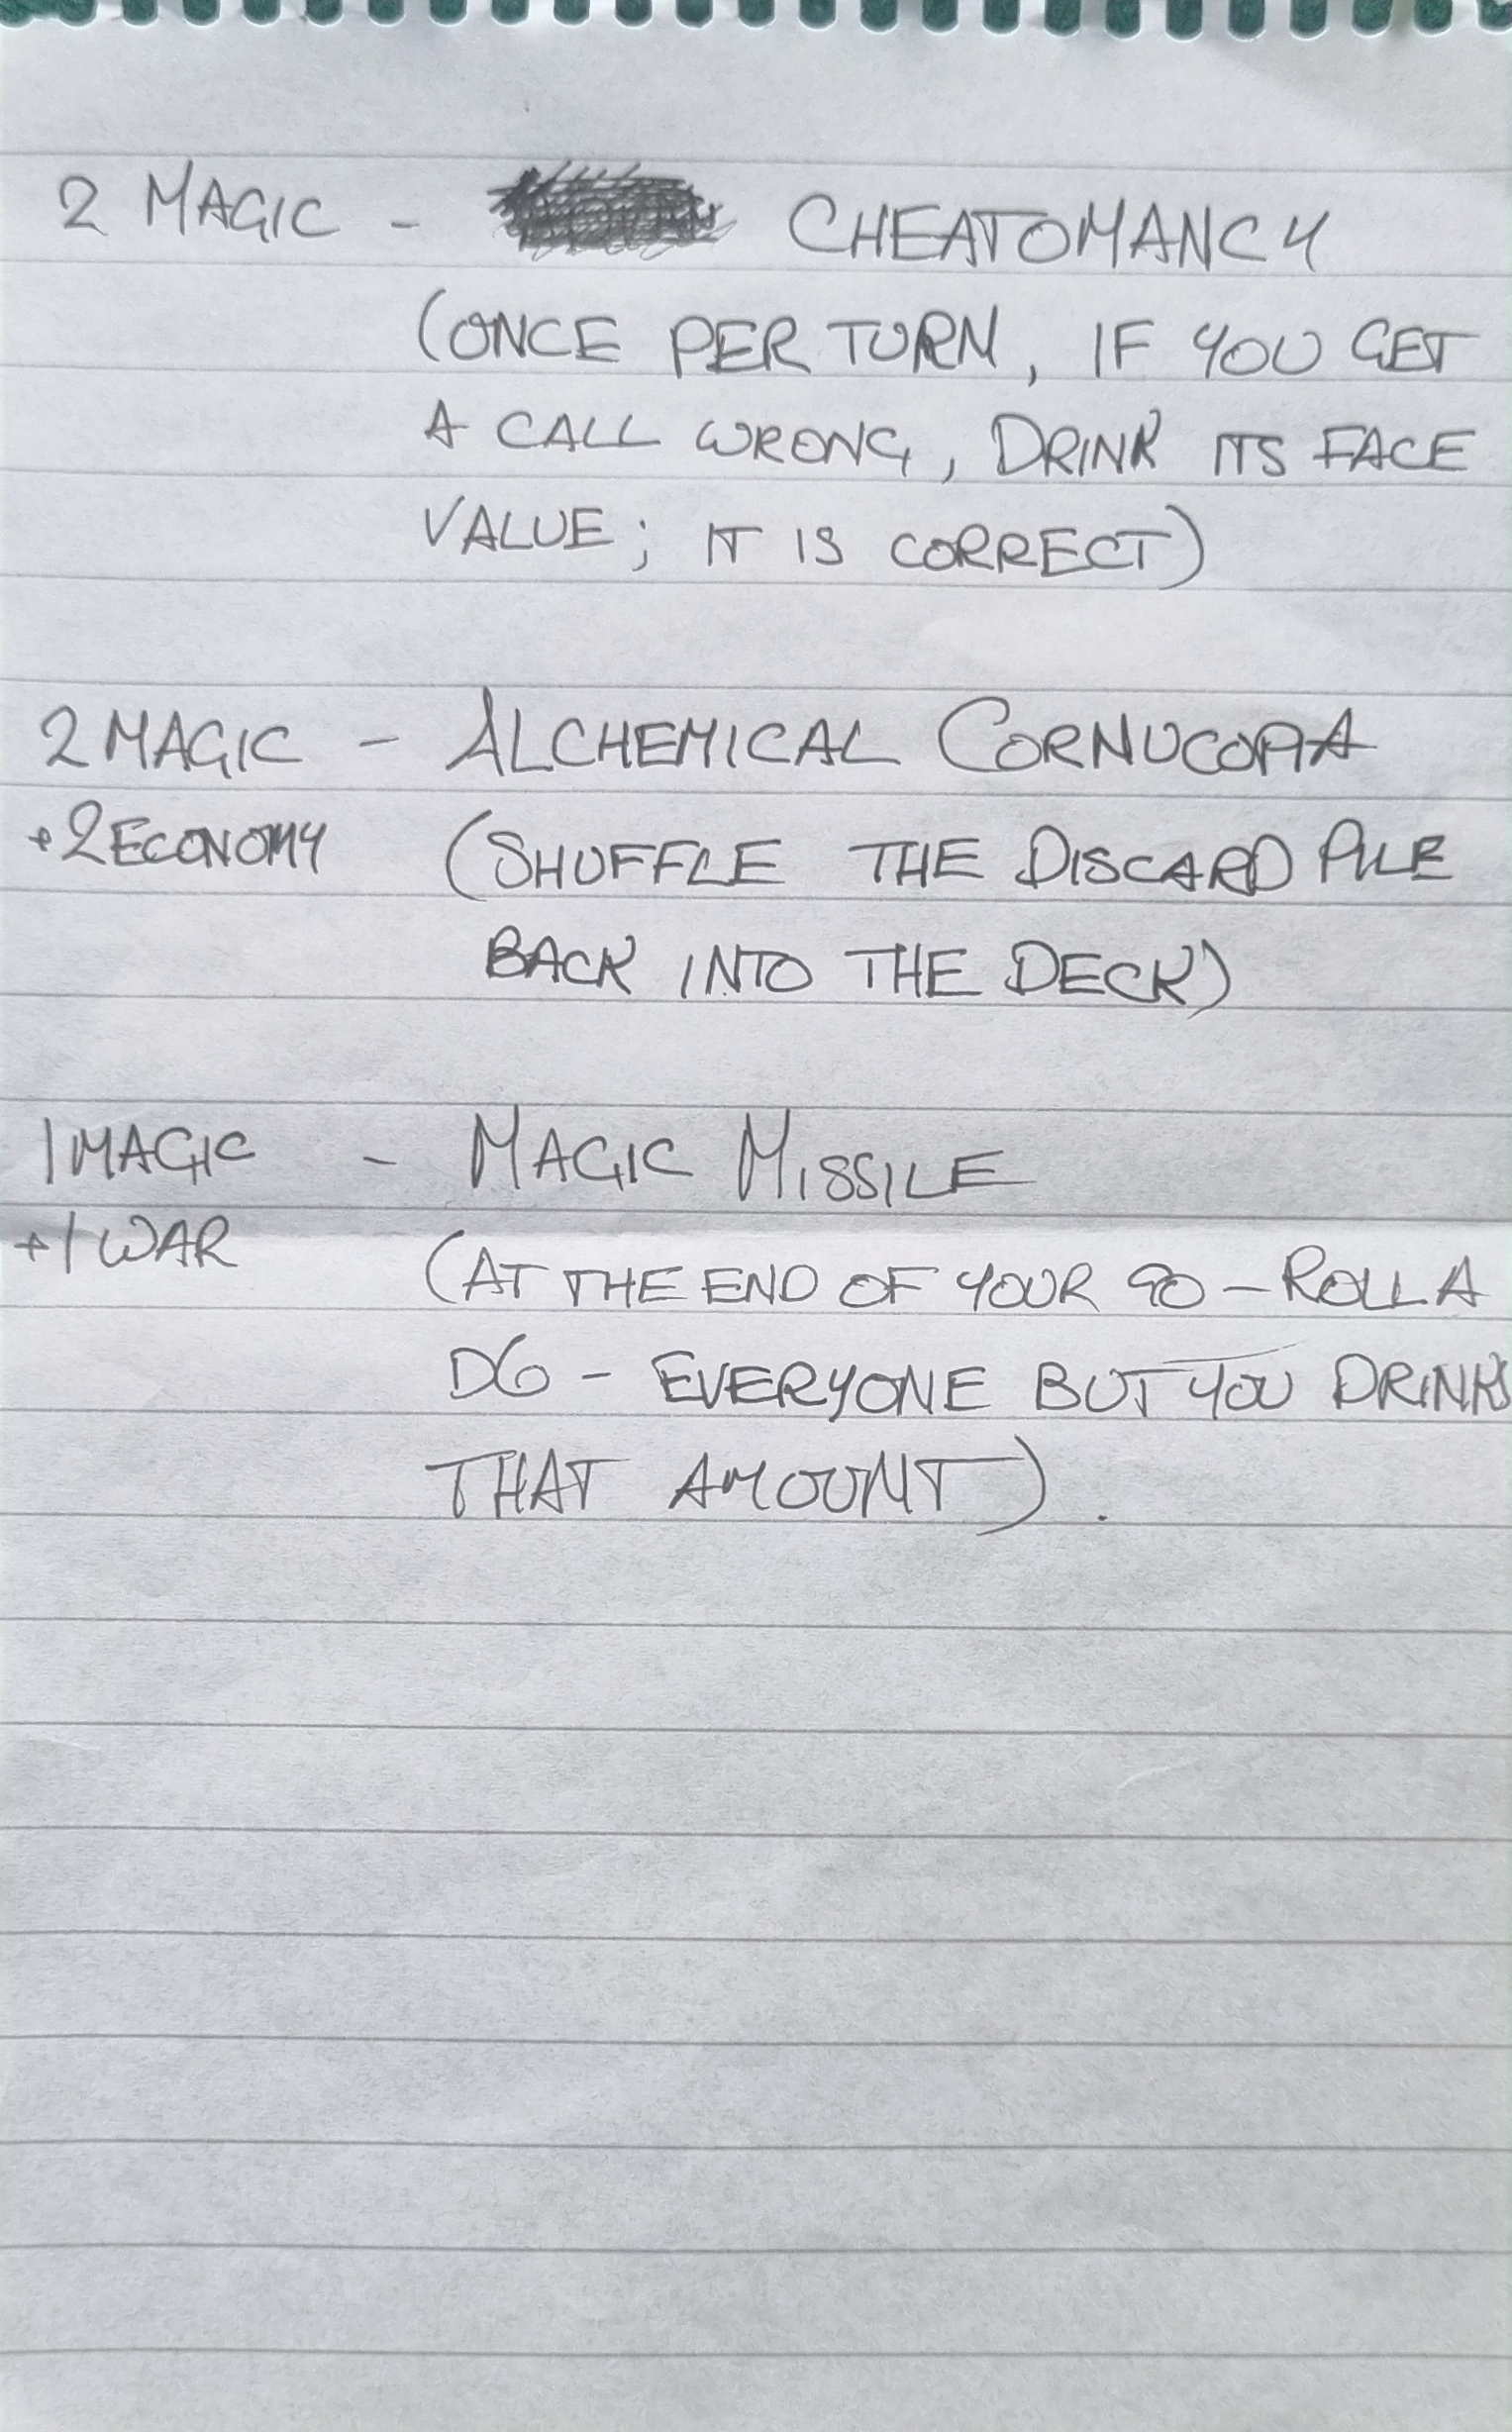 2 MAGIC - CHEATOMANCY
(ONCE PER TURN, IF YOU GET
A CALL WRONG, DRINK ITS FACE
VALUE; IT IS CORRECT)
2 MAGIC - ALCHEMICAL CORNUCOPIA
+2 ECONOMY (SHUFFLE THE DISCARD PILE
BACK INTO THE DECK)
1 MAGIC - MAGIC MISSILE
+1 WAR (AT THE END OF YOUR GO - ROLL A
D6 - EVERYONE BUT YOU DRINKS
THAT AMOUNT).